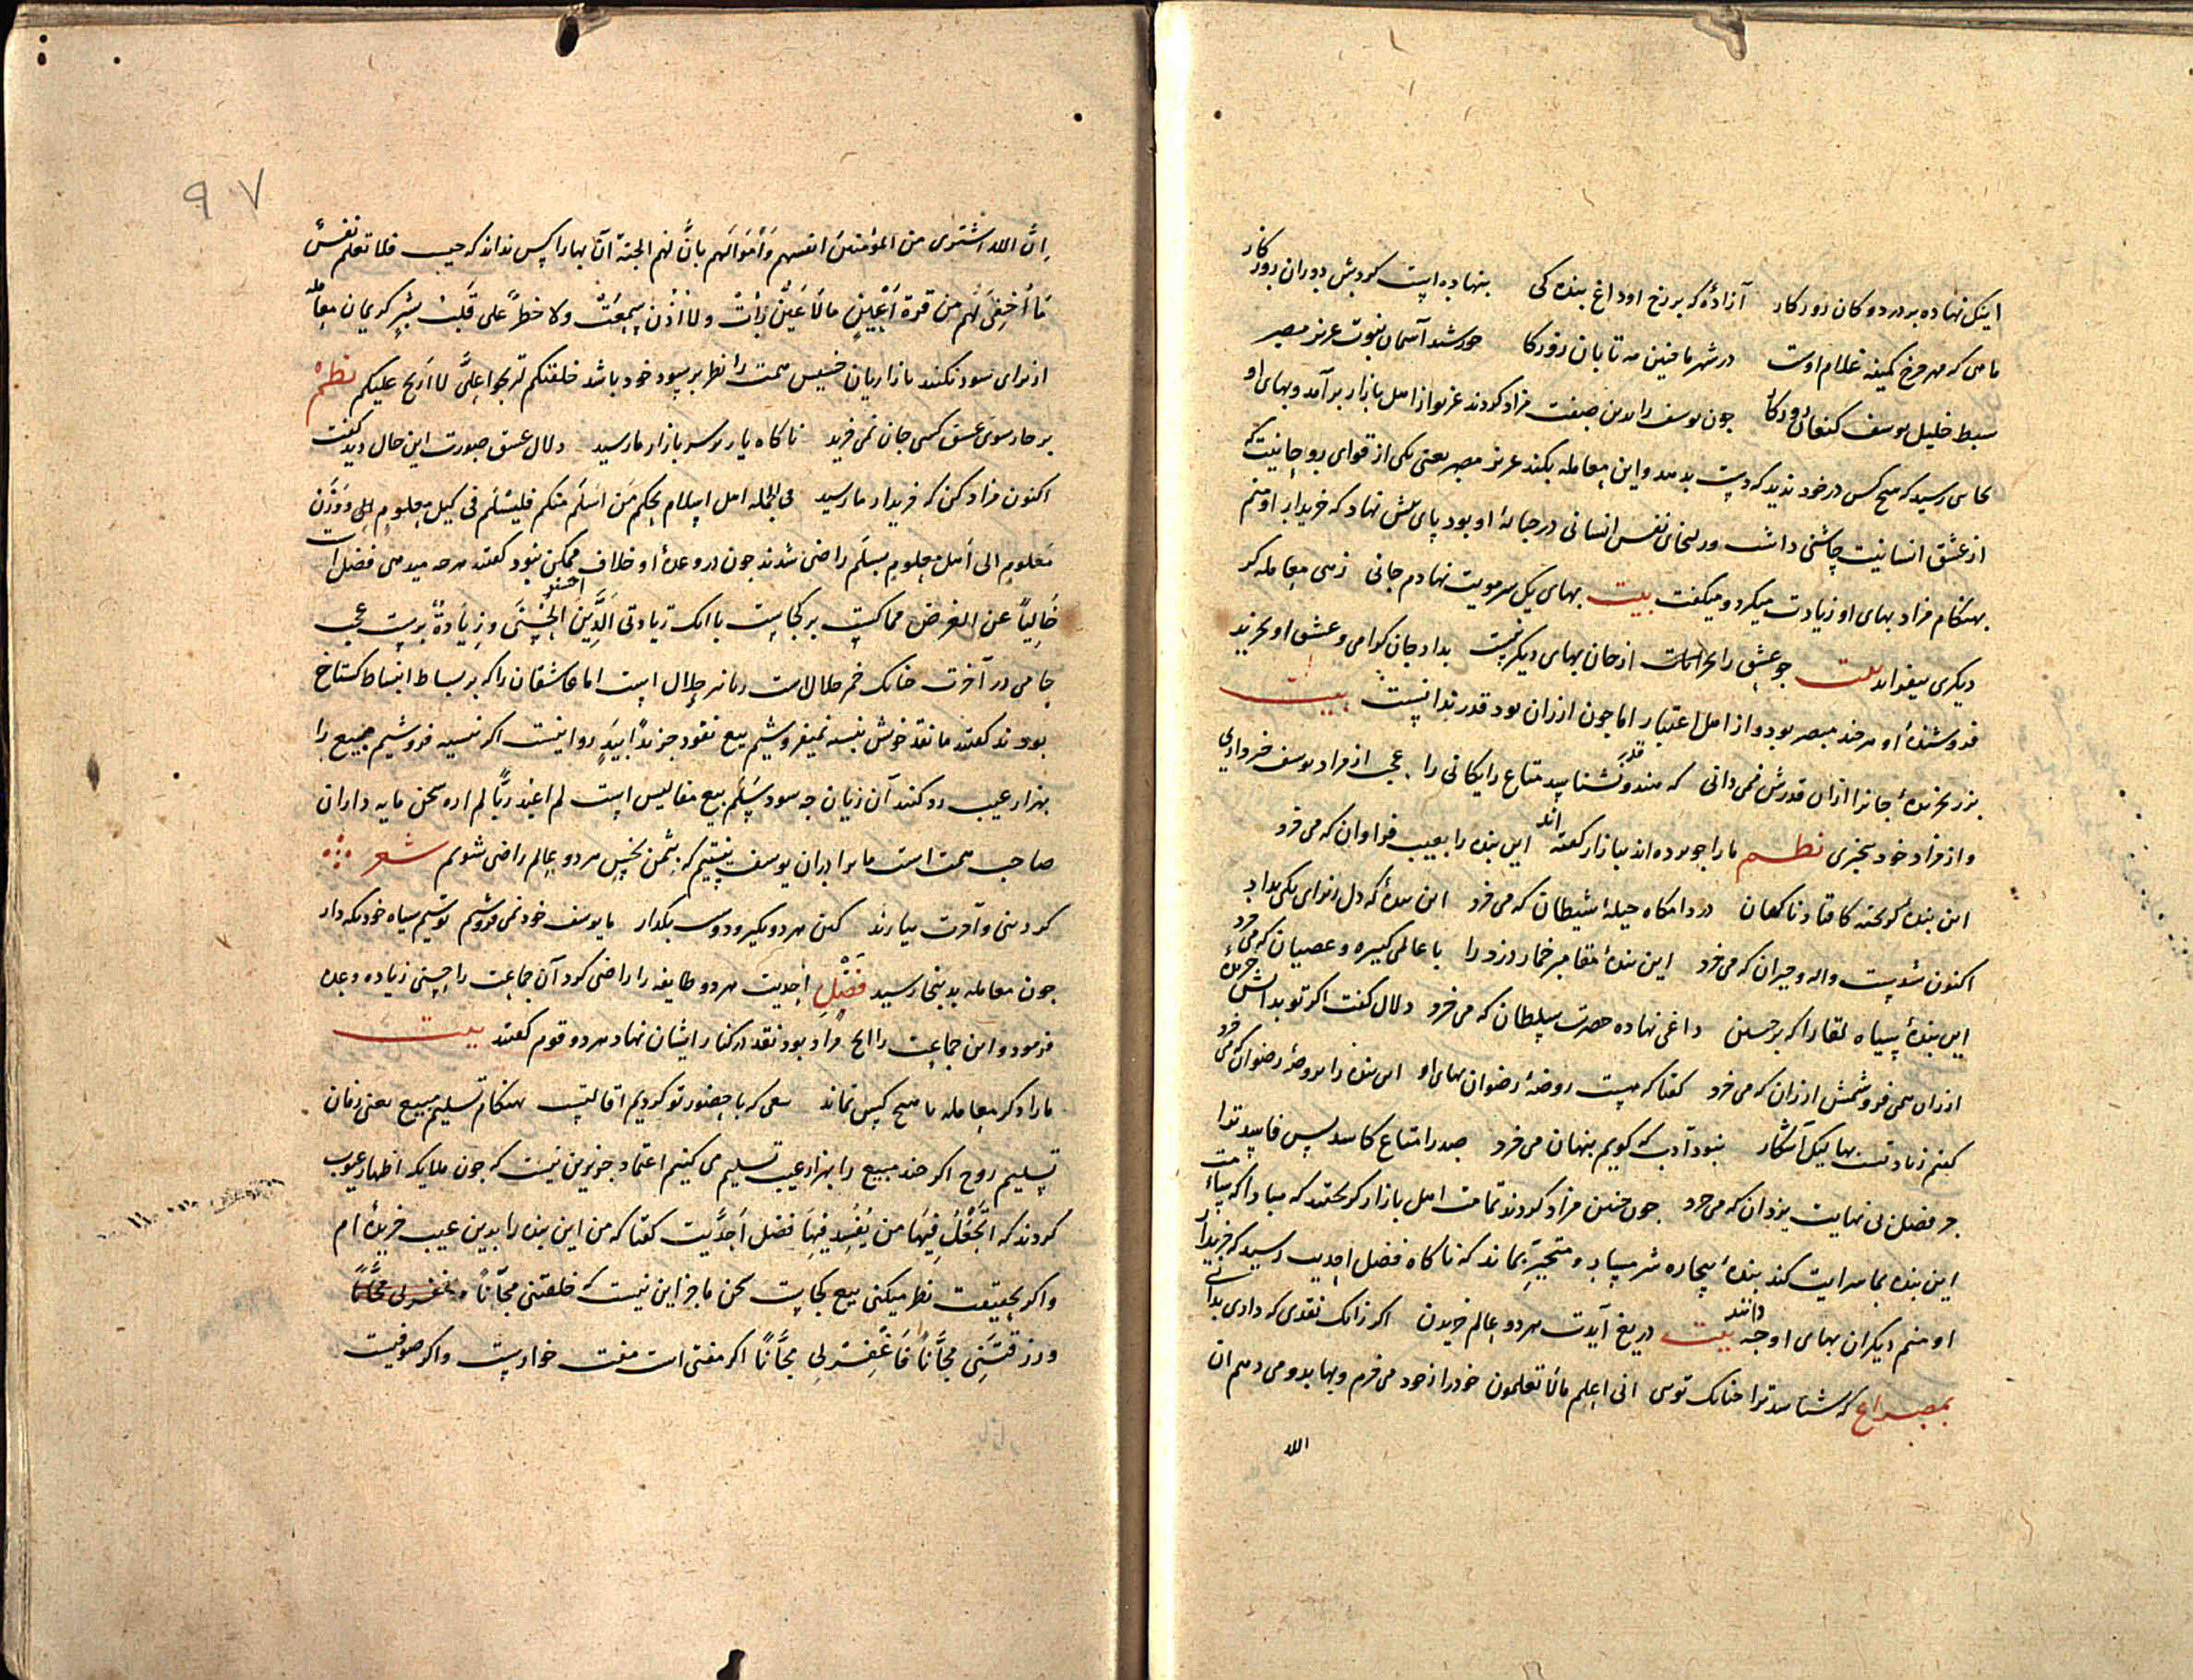 اینک نهاده بر در دوکان روزکار آزادهٔ که بر رخ او داغ بندهکی بنهاده است کردش دوران روزکار
ماهی که مهر فرخ کمینه غلام اوست در شهر ما مه تابان روزکا خورشید آسمان نبوت عزیز مصر
سبط خلیل یوسف کنعان روزکا چون یوسف را بدین صفت مزاد کردند غریو از اهل بازار برآمد و بهای او
بجایی رسید که هیچ کس در خود ندید که دست بدهد و این معامله بکند عزیز مصر یعنی یکی از قوای روحانیت که
از عشق انسانیت چاشنی داشت و زلیخای نفس انسانی در حبالهٔ او بود پای پیش نهاد که خریدار او منم
بهنکام مزاد بهای او زیادت میکرد و میکفت بیت بهای یک سر مویت نهادم جانی زهی معامله کر
دیکری بیفزاید بیت جو عشق را از جان بهای دیکر نیست بداد جان کرامی و عشق او بخرید
فروشندهٔ او هرچند مبصر بود و از اهل اعتبار اما چون ارزان بود قدر ندانست بیت
بزر نخریدهٔ جانرا ازان قدرش نمی دانی که هندو قدر نشناسد متاع رایکانی را عجب از مزاد یوسف خبر داری
و از مزاد خود بیخبری نظم ما را جو برده اند ببازار کفته اند این بنده را بعیب فراوان که می خرد
این بندهٔ کریخته کافتاد ناکهان در دامکاه حیلهٔ شیطان که می خرد این بندهٔ که دل بهوای یکی بداد
اکنون شدست واله و حیران که می خرد این بندهٔ مقامر خمار دزد را با عالمی کبیره و عصیان که می خرد
این بندهٔ سیاه لقا را که بر جبین داغی نهاده حضرت سلطان که می خرد دلال کفت اکر تو بدانش خریدهٔ
ارزان همی فروشمش ارزان که می خرد کفتا که هست روضهٔ رضوان بهای او این بنده را بروضهٔ رضوان که می خرد
کفتم زیادتست بها لیک آشکار نبود ادب که کویم پنهان می خرد صد را متاع کاسد بس فاسد ترا
جز فضل بی نهایت یزدان که می خرد چون چنین مزاد کردند تمامت اهل بازار کریختند که مبادا که شآمت
این بنده بما سرایت کند بندهٔ بیچاره شرمسار و متحیر بماند که ناکاه فضل احدیت رسید که خریدار
او منم دیکران بهای او چه دانند بیت دریغ آیدت هر دو عالم خریدن اکر زانک نقدی که داری بدانی
بمصراع که شناسد ترا چنانک توی انی اعلم ما لا تعلمون خود را از خود می خرم و بها بدو می دهم ان
الله
۹۷
اِنَّ الله اشتری من المؤمنین انفسهم وَاَمْوَالَهم بانَّ لهم الجنة آن بها را کس نداند که چیست فلا تعلم نفسٌ
مَا أُخْفِیَ لَهُم من قرة أَعْیُنٍ ما لَا عَیْنٌ رَأَتْ ولا أُذُن سَمِعَتْ ولا خطرَ عَلی قَلْبِ بَشَرٍ کریمان معامله
از برای سود نکنند بازاریان خسیس همت را نظر بر سود خود باشد خلقتکم لتربحوا عَلَیَّ لا لاَربح علیکم نظم
بر چارسوی عشق کسی جان نمی خرید ناکاه یار بر سر بازار ما رسید دلال عشق صورت این حال دید کفت
اکنون مزاد کن که خریدار ما رسید فی الجمله اهل اسلام بحکم مَن اَسلَم منکم فلیسلم فی کیل معلوم وَوَزْن
معلومٍ الی اَجل معلومٍ بسلَم راضی شدند چون در وعدهٔ او خلاف ممکن نبود کفتند هرچه میدهی فضل است
خَالِیاً عن الغرض مماکست برکجاست با انک زیادتی لِلَّذِینَ احسنوا الحُسْنَی وزِیَادَةٌ برسرست عجب
جامی در آخرت چنانک خمر حلال است ربا نیز حلال است اما عاشقان را که بر بساط انبساط کستاخ
بودند کفتند ما نقد خویش بنسیه نمیفروشیم بیع نقود جز یداً بِیَدٍ روا نیست اکر نسیه فروشیم مبیع را
بهزار عیب رد کنند آن زیان چه سود سَلَم بیع مفالیس است لم اعبد ربًّا لم اره سخن مایه داران
صاحب همت است ما برادران یوسف نیستیم که بثمن بخس هر دو عالم راضی شویم شعر
کر دنیی و آخرت بیارند کین هر دو بکیر و دوست بکذار ما یوسف خود نمی فروشیم تو سیم سیاه خود نکه دار
چون معامله بدینجا رسید فَضْلِ احدیت هر دو طایفه را راضی کرد آن جماعت را حسنی زیاده وعده
فرمود و این جماعت را انچ مراد بود نقد در کنار ایشان نهاد هر دو قوم کفتند بیت
ما را دکر معامله با هیچ کس نماند بیعی که با حضور تو کردیم اقالتست بهنکام تسلیم مبیع یعنی زمان
تسلیم روح اکر چند مبیع را بهزار عیب تسلیم می کنیم اعتماد جز برین نیست که چون ملایکه اظهار عیوب
کردند که اَتَجْعَلُ فِیهَا من یُفْسِد فِیهَا فضل اَحَدِیَّت کفتا که من این بنده را بدین عیب خریده ام
و اکر بحقیقت نظر میکنی بیع کجاست سخن ما جز این نیست که خلقتنی مجّاناً
ورزقتَنِی مجَّاناً فَاغْفِرْ لِی مجَّانًا اکر مفتی است مفت خوارست و اکر صوفیست